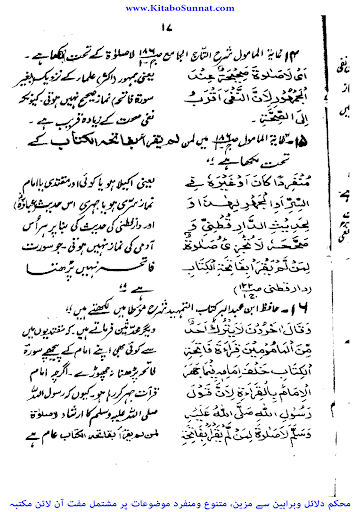 www.KitaboSunnat.com
۱۷
۱۴- غایۃ المامول شرح التاج الجامع ص ۱۸۶ لاصلوٰۃ کے تحت لکھا ہے۔
اَیْ لَاصَلَاۃَ صَحِیْحَۃٌ عِنْدَ
الْجَمْہُوْرِ لِاَنَّ النَّفْیَ اَقْرَبُ
اِلَی الصِّحَّۃِ۔
یعنی جمہور (اکثر) علماء کے نزدیک بغیر
سورۃ فاتحہ نماز صحیح نہیں ہوتی۔ کیونکہ
نفی صحت کے زیادہ قریب ہے۔
۱۵- غایۃ المامول ص ۱۸۶ میں لمن لم یقرأ بفاتحۃ الکتاب کے
تحت لکھا ہے
مُنْفَرِدًا کَانَ اَوْ غَیْرَہٗ فِی
السِّرِّ اَوِ الْجَہْرِ لِہٰذَا وَ
لِحَدِیْثِ الدَّارِ قُطْنِیْ وَ
صَحَّحَہٗ لَا تُجْزِئُ صَلٰوۃٌ
لِمَنْ لَّمْ یَقْرَأْ بِفَاتِحَۃِ الْکِتَابِ
(دار قطنی ص ۱۲۲ ج ۱)
یعنی اکیلا ہو یا کوئی اور مقتدی یا امام
نماز سری ہو یا جہری اس حدیث (عبادہؓ)
اور دار قطنی کی حدیث کی بنا پر ہر اُس
آدمی کی نماز نہیں ہوتی۔ جو سورت
فاتحہ نہیں پڑھتا
ہے
۱۶- حافظ ابن عبدالبر کتاب التمہید شرح مؤطا میں لکھتے ہیں
وَقَالَ اٰخَرُوْنَ لَا یَتْرُکُ اَحَدٌ
مِّنَ الْمَامُوْمِیْنَ قِرَاءَۃَ فَاتِحَۃِ
الْکِتَابِ خَلْفَ اِمَامِہٖ فِیْمَا جَہَرَ
الْاِمَامُ بِالْقِرَاءَۃِ لِاَنَّ قَوْلَ
رَسُوْلِ اللہِ صَلَّی اللہُ عَلَیْہِ
وَسَلَّمَ لَاصَلَاۃَ لِمَنْ لَّمْ یَقْرَأْ بِفَاتِحَۃِ
دیگر محدثین فرماتے ہیں۔ کہ مقتدیوں میں
سے کوئی بھی اپنے امام کے پیچھے سورۃ
فاتحہ پڑھنا نہ چھوڑے۔ اگرچہ امام
قرآت جہر کر رہا ہو۔ کیوں کہ رسول اللہ
صلی اللہ علیہ وسلم کا ارشاد لا صلوٰۃ
لمن لم یقرأ بفاتحۃ الکتاب عام ہے
محکم دلائل وبراہین سے مزین، متنوع ومنفرد موضوعات پر مشتمل مفت آن لائن مکتبہ